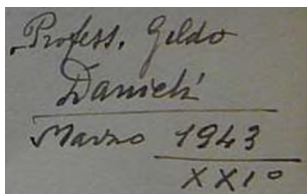 Profess. Gildo
Danieli
Marzo 1943
XXI°